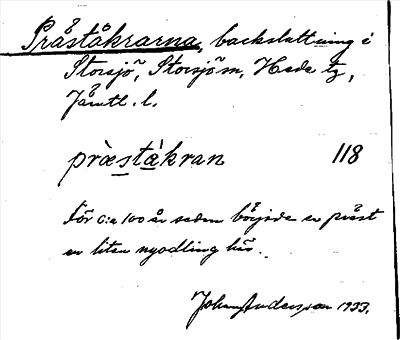 Präståkrarna, backsluttning i
Storsjö, Storsjö sn, Hede tg,
Jämtl. l.
præståkran 118
För c:a 100 år sedan började en präst
en liten nyodling här.
Johan Andersson 1933.